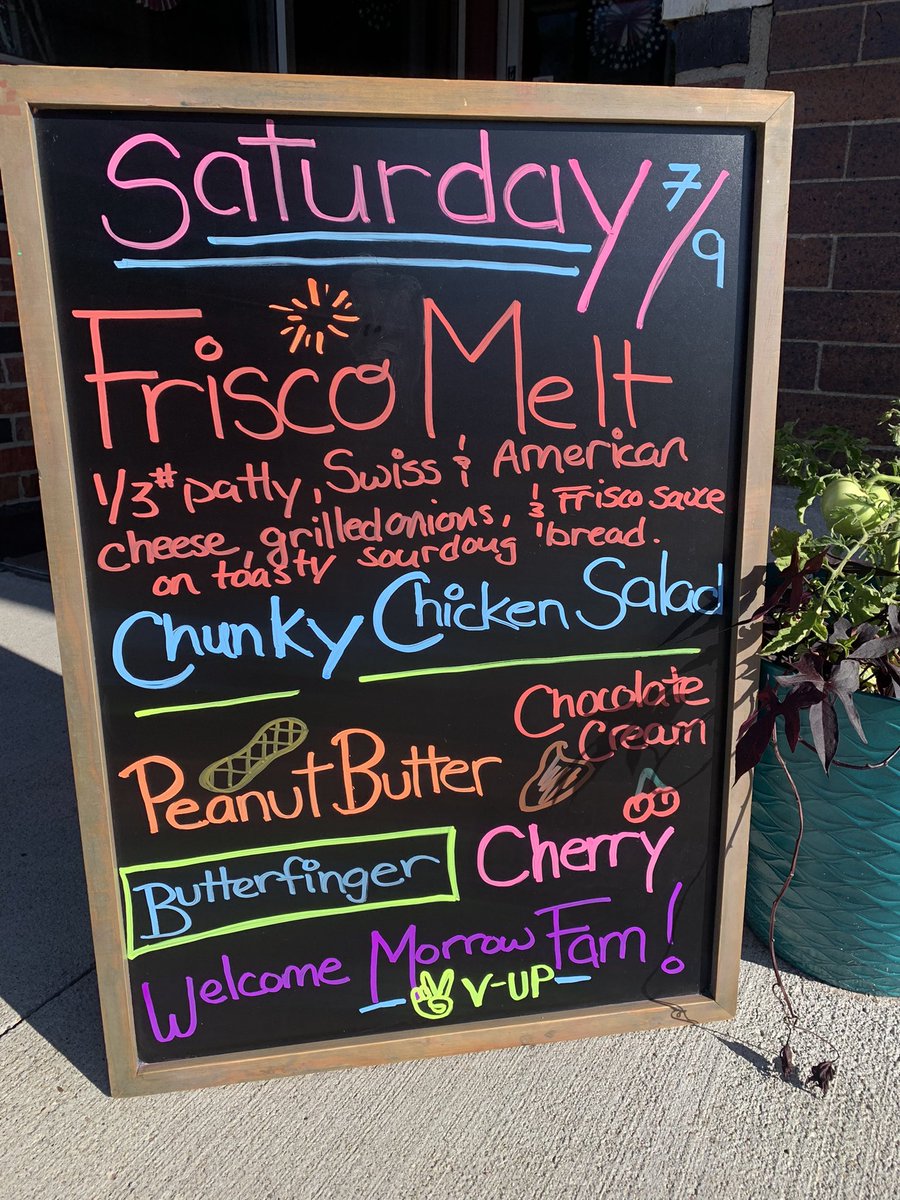 Saturday 7/9
Frisco Melt
1/3# patty, Swiss & American
cheese, grilled onions, & Frisco sauce
on toasty sourdoug bread.
Chunky Chicken Salad
Chocolate
Cream
Peanut Butter
Cherry
Butterfinger
Welcome Morrow Fam!
V-UP